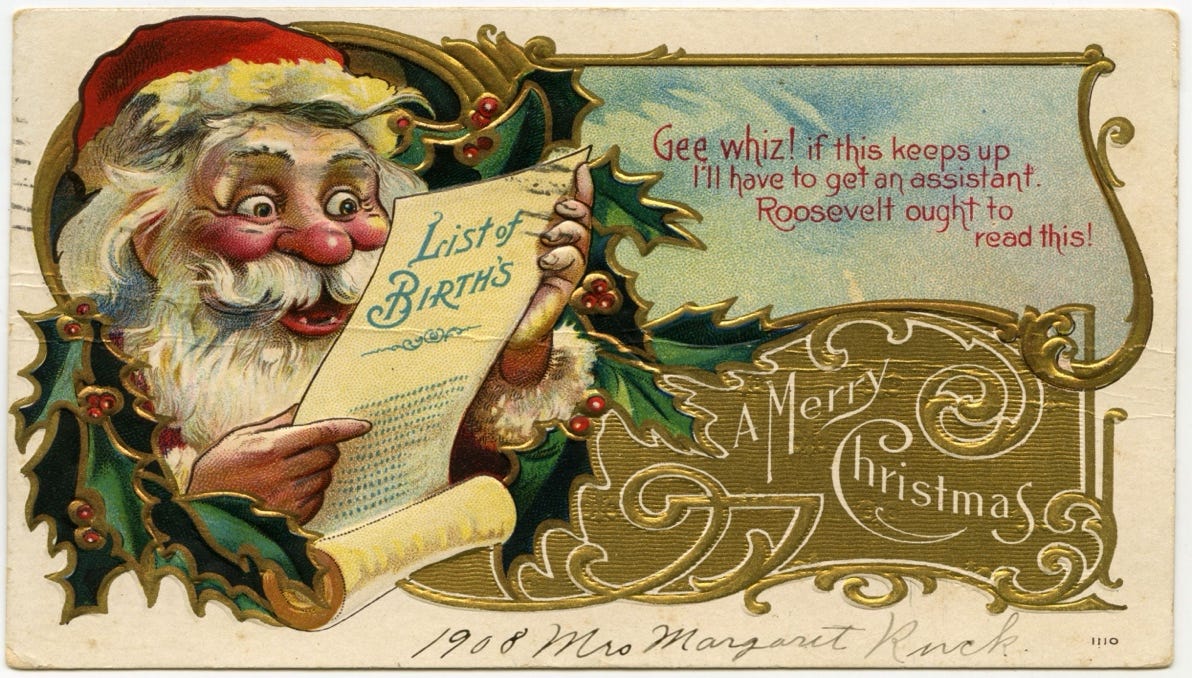 List of
Birth's
Gee whiz! if this keeps up
I'll have to get an assistant.
Roosevelt ought to
read this!
A Merry
Christmas
1908 Mrs Margaret Ruck.
1110